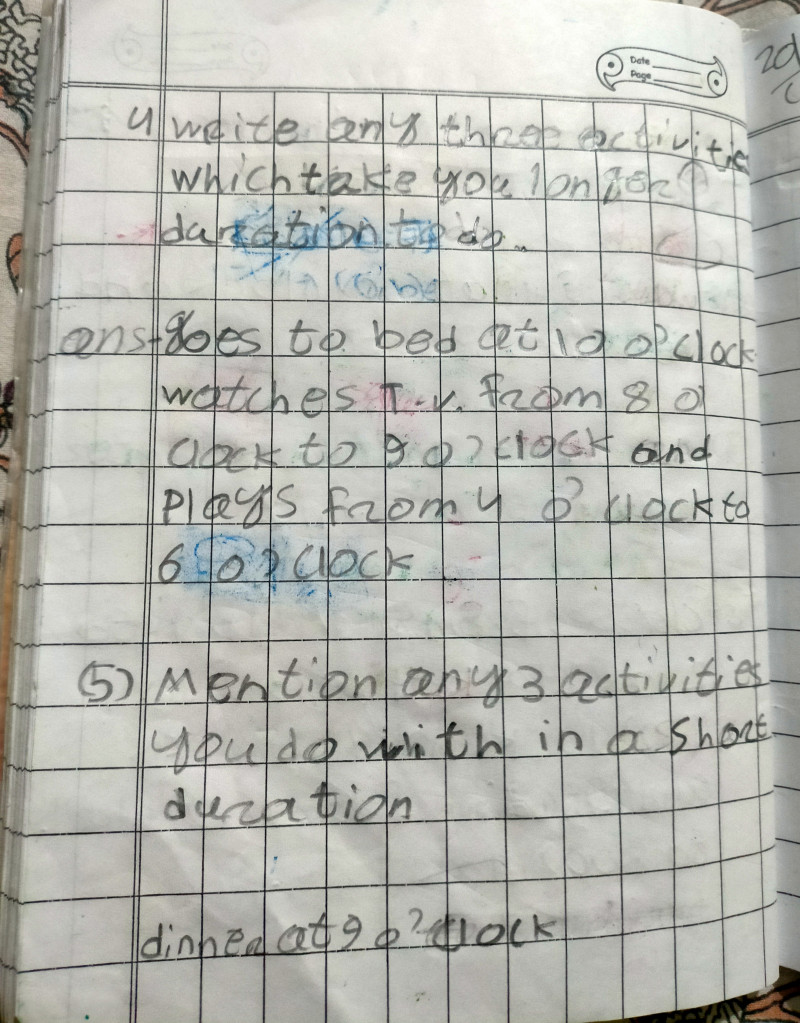 Date
Page
20
4 write any three activitie
which take you longer
duration to do.
ans- goes to bed at 10 o'clock
watches T.v. from 8 o'
clock to 9 o'clock and
Plays from 4 o'clock to
6 o'clock
(5) Mention any 3 activities
you do with in a short
duration
dinner at 9 o'clock